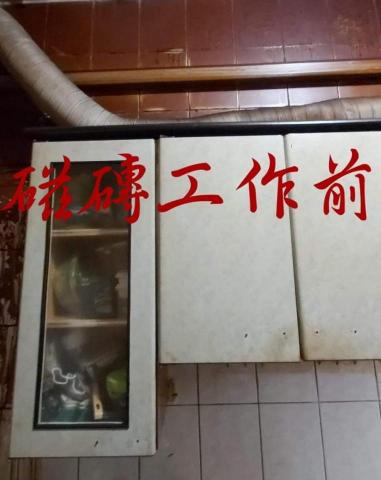 磁磚工作前